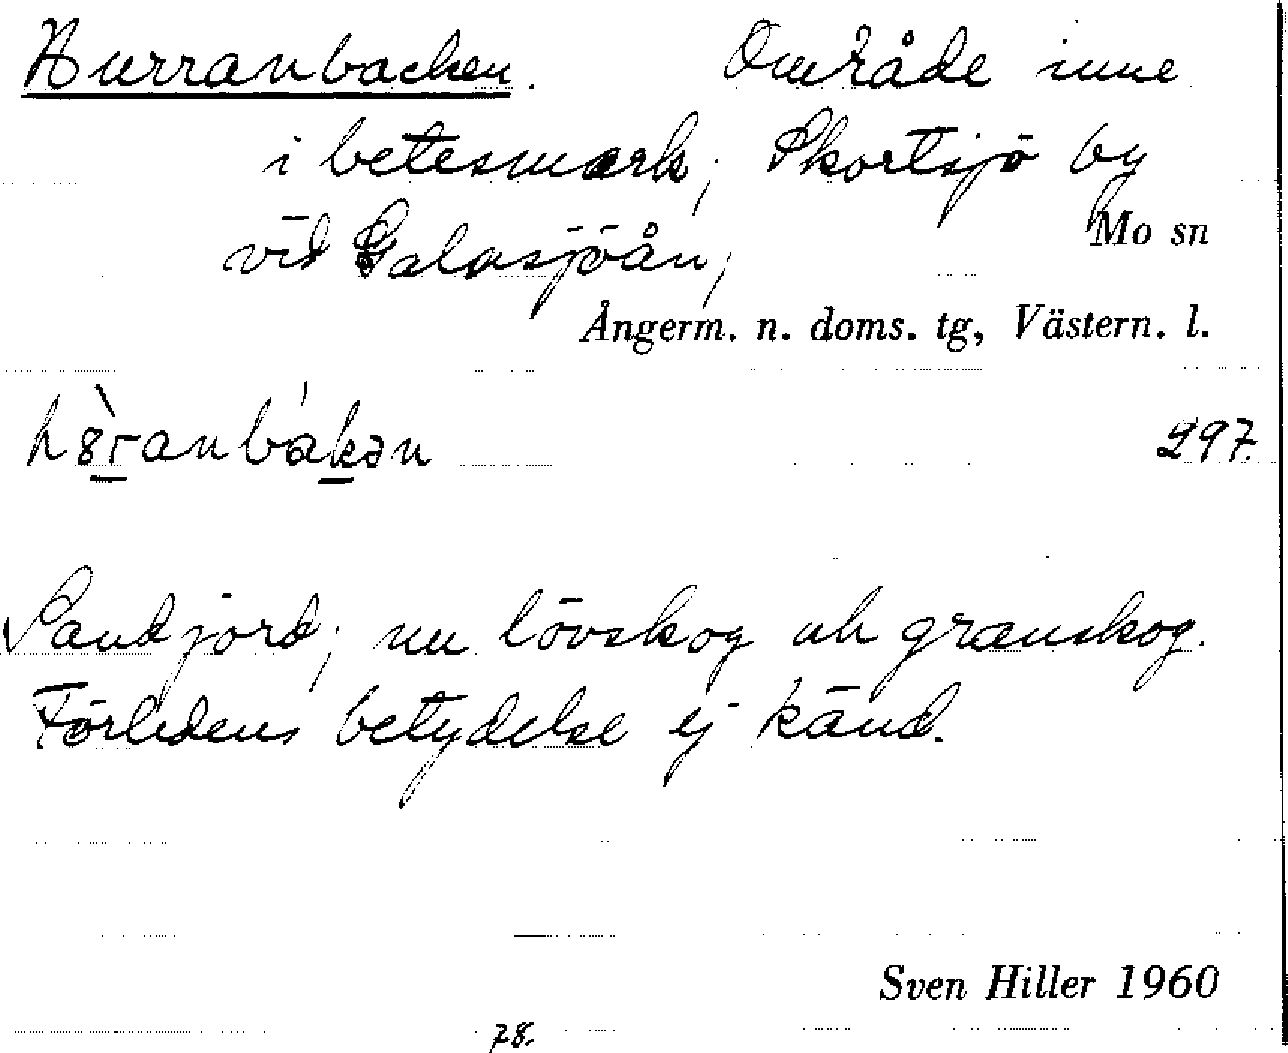 Hurranbacken. Område inne
i betesmark; Skortsjö by
vid Galasjöån,
Mo sn
Ångerm. n. doms. tg, Västern. l.
297.
Sandjord; nu lövskog och granskog.
Förledens betydelse ej känd.
Sven Hiller 1960
78.